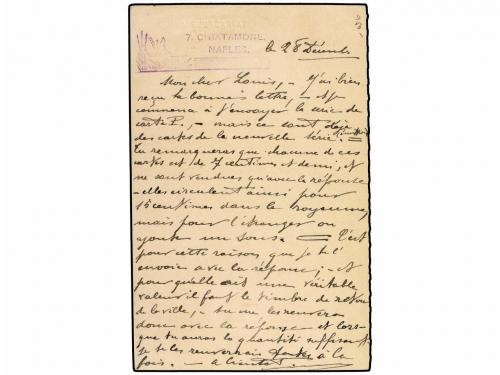 7. CHIATAMONE,
NAPLES.
le 28 Décemb
Mon cher Louis, - J'ai bien
reçu ta bonne lettre, - et je
commence à t'envoyer la série de
carte P., - mais ce sont déjà
des cartes de la nouvelle série.
Tu remarqueras que chacune de ces
cartes est de 7 centimes et demi, et
ne sont vendues qu'avec la réponse
- elles circulent ainsi pour
15 centimes dans le royaume,
mais pour l'étranger on
ajoute un sous. = C'est
pour cette raison que je te l'
envoie avec la réponse; - et
pour qu'elle ait une véritable
valeur il faut le timbre de retour
de la ville, - tu me les renverras
donc avec la réponse et lors-
que tu auras la quantité suffisante
je te les renverrai toutes à la
fois. - à bientôt.